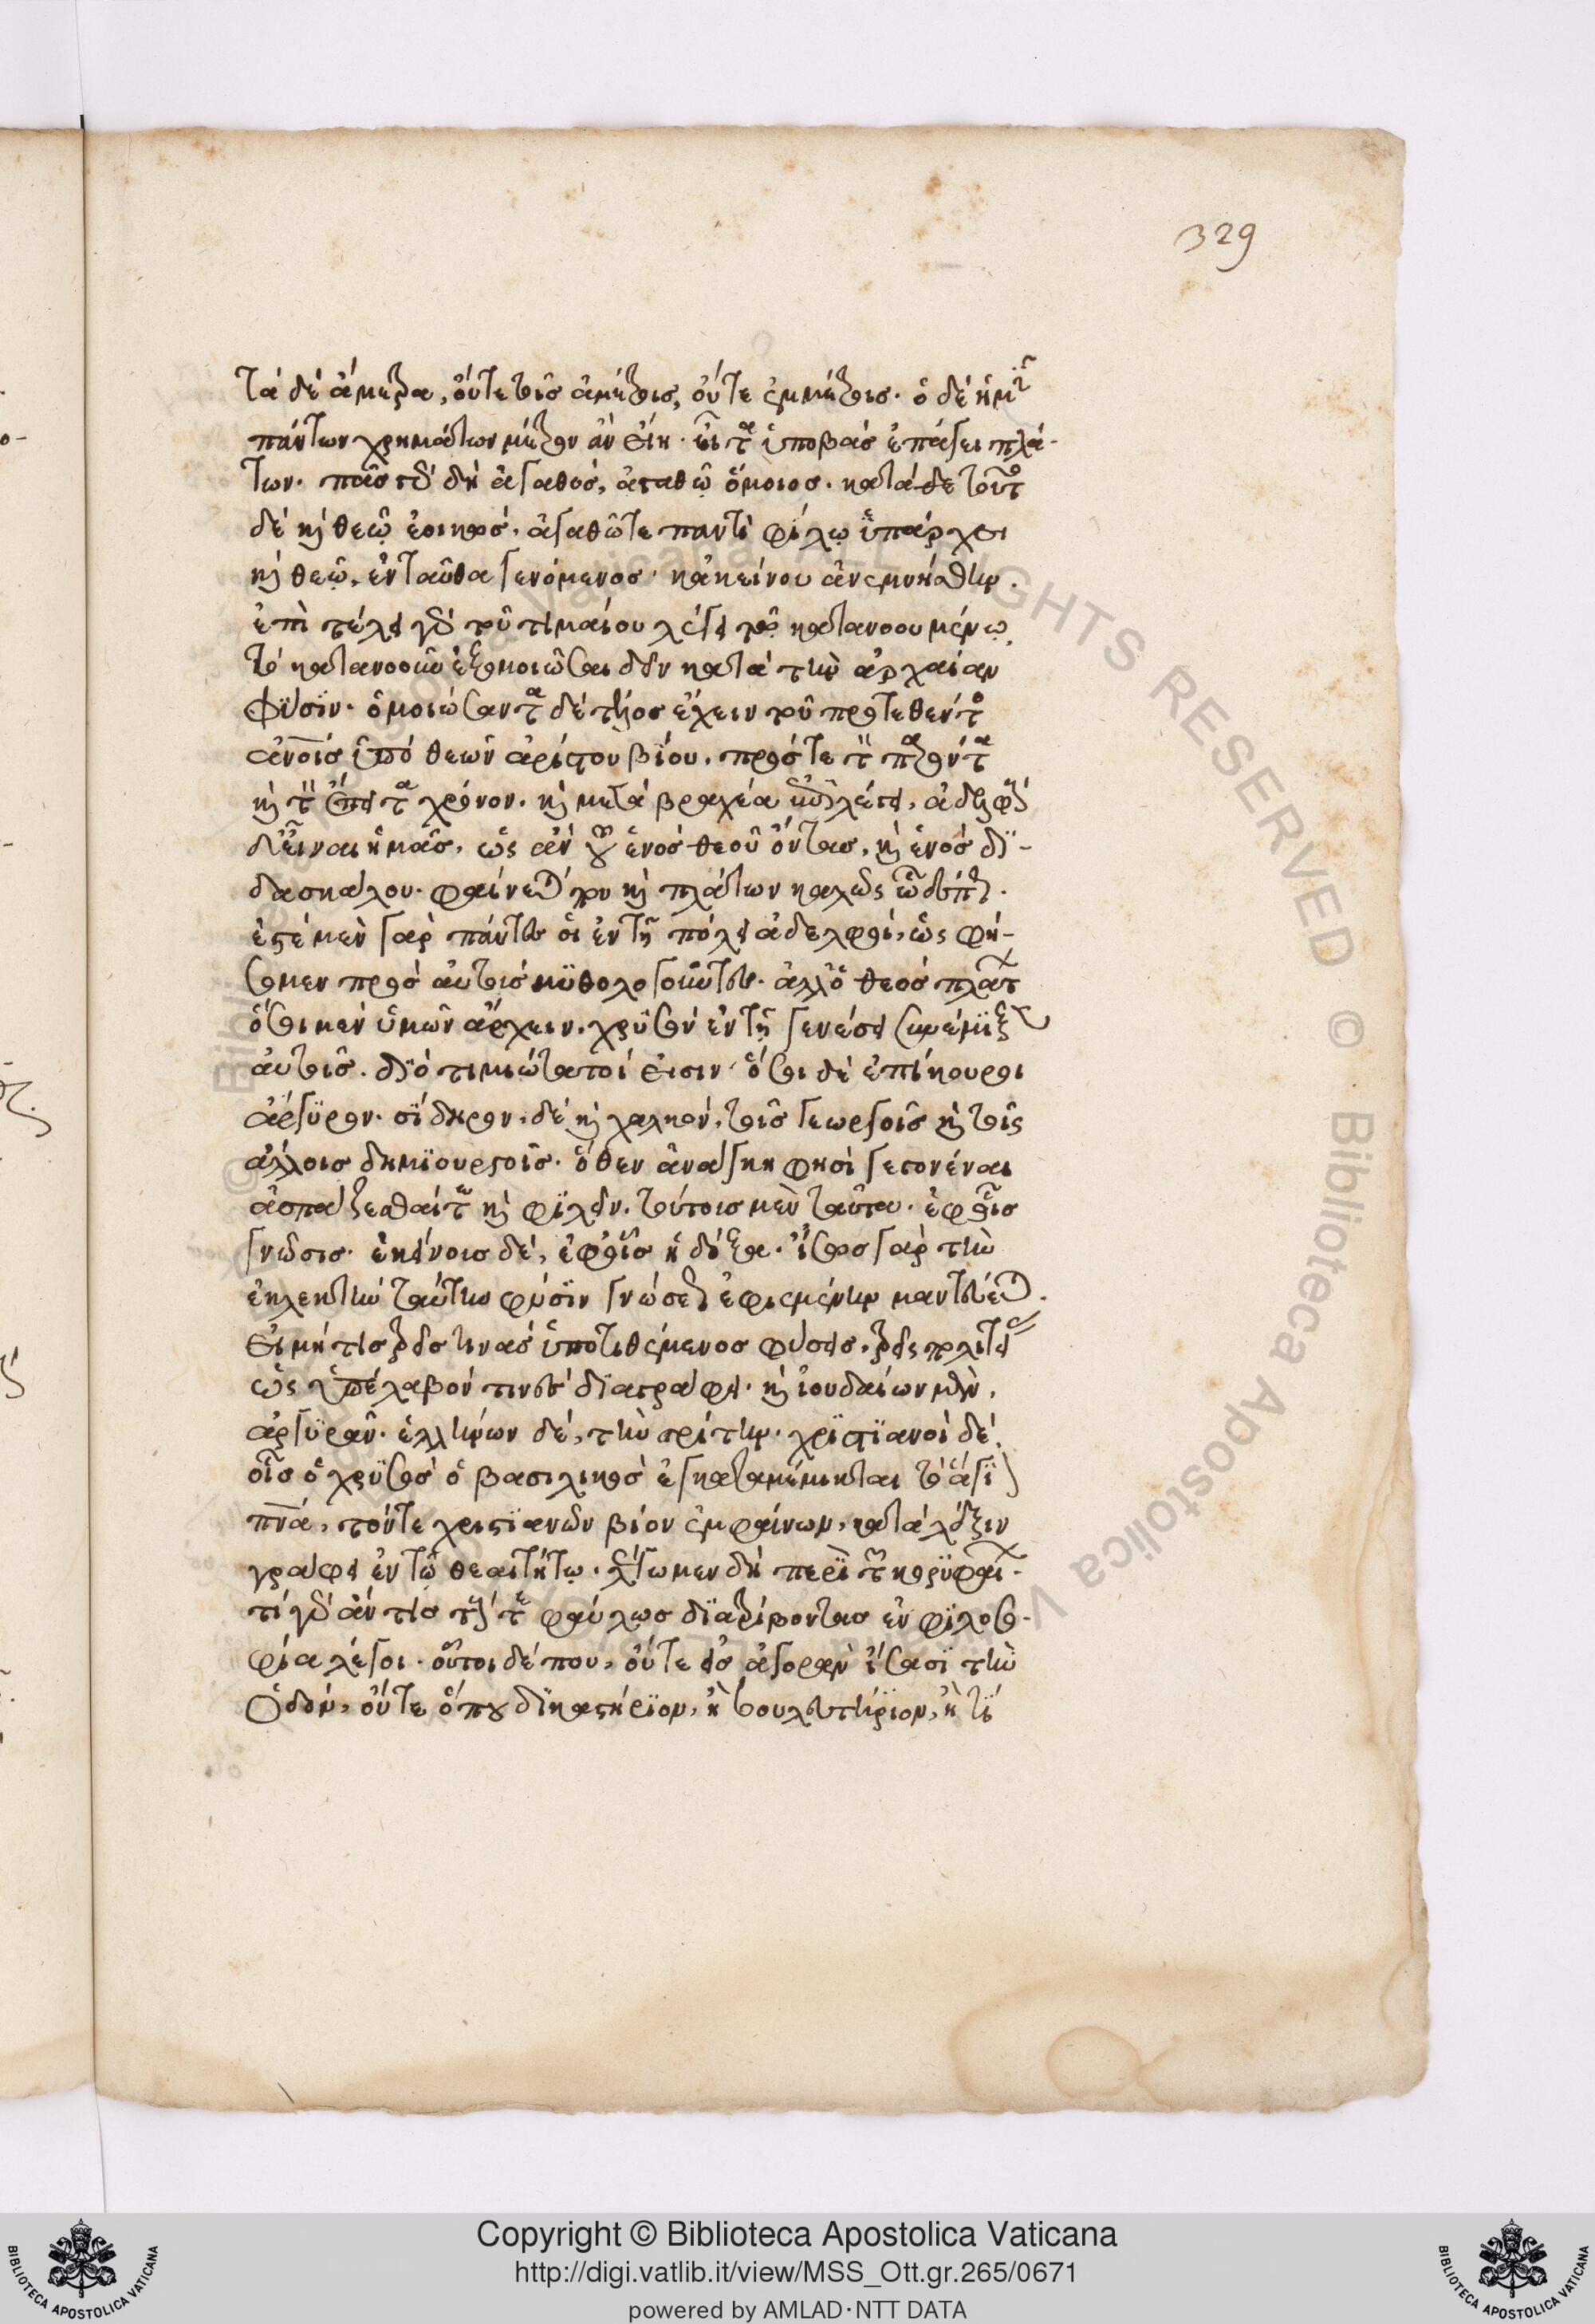 329
τὰ δὲ ἄμετρα, οὔτε τοῖς ἀμέτροις, οὔτε ἐμμέτροις. ὁ δὲ ἡμῖν
πάντων χρημάτων μέτρον ἂν εἴη. εἶτα ὑποβὰς ἐπάγει πλά-
των. πᾶς δὲ δὴ ἀγαθὸς, ἀγαθῷ ὅμοιος. κατὰ δὲ τοῦτο
δὲ καὶ θεῷ ἐοικὼς. ἀγαθῷ τε παντὶ φίλος ὑπάρχει
καὶ θεῷ, ἐνταῦθα γενόμενος κἀκείνου ἀνεμνήσθην.
ἐπὶ τέλει γὰρ τοῦ τιμαίου λέγει τῷ κατανοουμένῳ
τὸ κατανοοῦν ἐξομοιῶσαι δεῖν κατὰ τὴν ἀρχαίαν
φύσιν. ὁμοιώσαντα δὲ τέλος ἔχειν τοῦ προτεθέντος
ἀνοις ὑπὸ θεῶν ἀρίστου βίου, πρός τε τὸν παρόντα
καὶ τὸν ἔπειτα χρόνον. καὶ μετὰ βραχέα
εἶναι ἡμᾶς, ὡς ἂν ἑνὸς θεοῦ ὄντας, καὶ ἑνὸς δι-
δασκάλου. φαίνεταί που καὶ πλάτων καλῶν ὧδέ πως.
ἐστὲ μὲν γὰρ πάντες οἱ ἐν τῇ πόλει ἀδελφοί, ὡς φή-
σομεν πρὸς αὐτοὺς μυθολογοῦντες. ἀλλ' ὁ θεὸς πλάττων
ὅσοι μὲν ὑμῶν ἄρχειν. χρυσὸν ἐν τῇ γενέσει συνέμιξεν
αὐτοῖς. διὸ τιμιώτατοί εἰσιν· ὅσοι δὲ ἐπίκουροι
ἄργυρον. σίδηρον δὲ καὶ χαλκόν, τοῖς γεωργοῖς καὶ τοῖς
ἄλλοις δημιουργοῖς. ὅθεν ἀνάγκη φησὶ γεγονέναι
ἀσπάζεσθαί τε καὶ φιλεῖν. τούτους μὲν ταῦτα. ἐφ' οἷς
γνῶσις. ἐκείνοις δέ, ἐφ' οἷς ἡ δόξα. ἴσως γὰρ τὴν
ἐκλεκτὴν ταύτην φύσιν γνώσεως ἐφιεμένην μαντεύεται.
εἰ μή τι τρεῖς τινὰς ὑποτιθέμενος φύσεις, τρεῖς πολιτείας
ὡς ὑπέλαβόν τινες διαγράφει. καὶ ἰουδαίων μὲν,
ἀργυρᾶν. ἑλλήνων δέ, τὴν τρίτην. χριστιανοὶ δὲ
οἷς ὁ χρυσὸς ὁ βασιλικὸς ἐγκαταμέμικται τὸ ἅγιον
πνα, τόν τε χριστιανῶν βίον ἐμφαίνων, κατὰ λέξιν
γράφει ἐν τῷ θεαιτήτῳ. λέγωμεν δὴ περὶ τῶν κορυφαίων.
τί γὰρ ἄν τις τούς γε φαύλως διατρίβοντας ἐν φιλοσο-
φίᾳ λέγοι. οὗτοι δέ που, οὔτε εἰς ἀγορὰν ἴσασι τὴν
ὁδόν, οὔτε ὅπου δικαστήριον, ἢ βουλευτήριον, ἤ τι
Copyright © Biblioteca Apostolica Vaticana
http://digi.vatlib.it/view/MSS_Ott.gr.265/0671
powered by AMLAD·NTT DATA